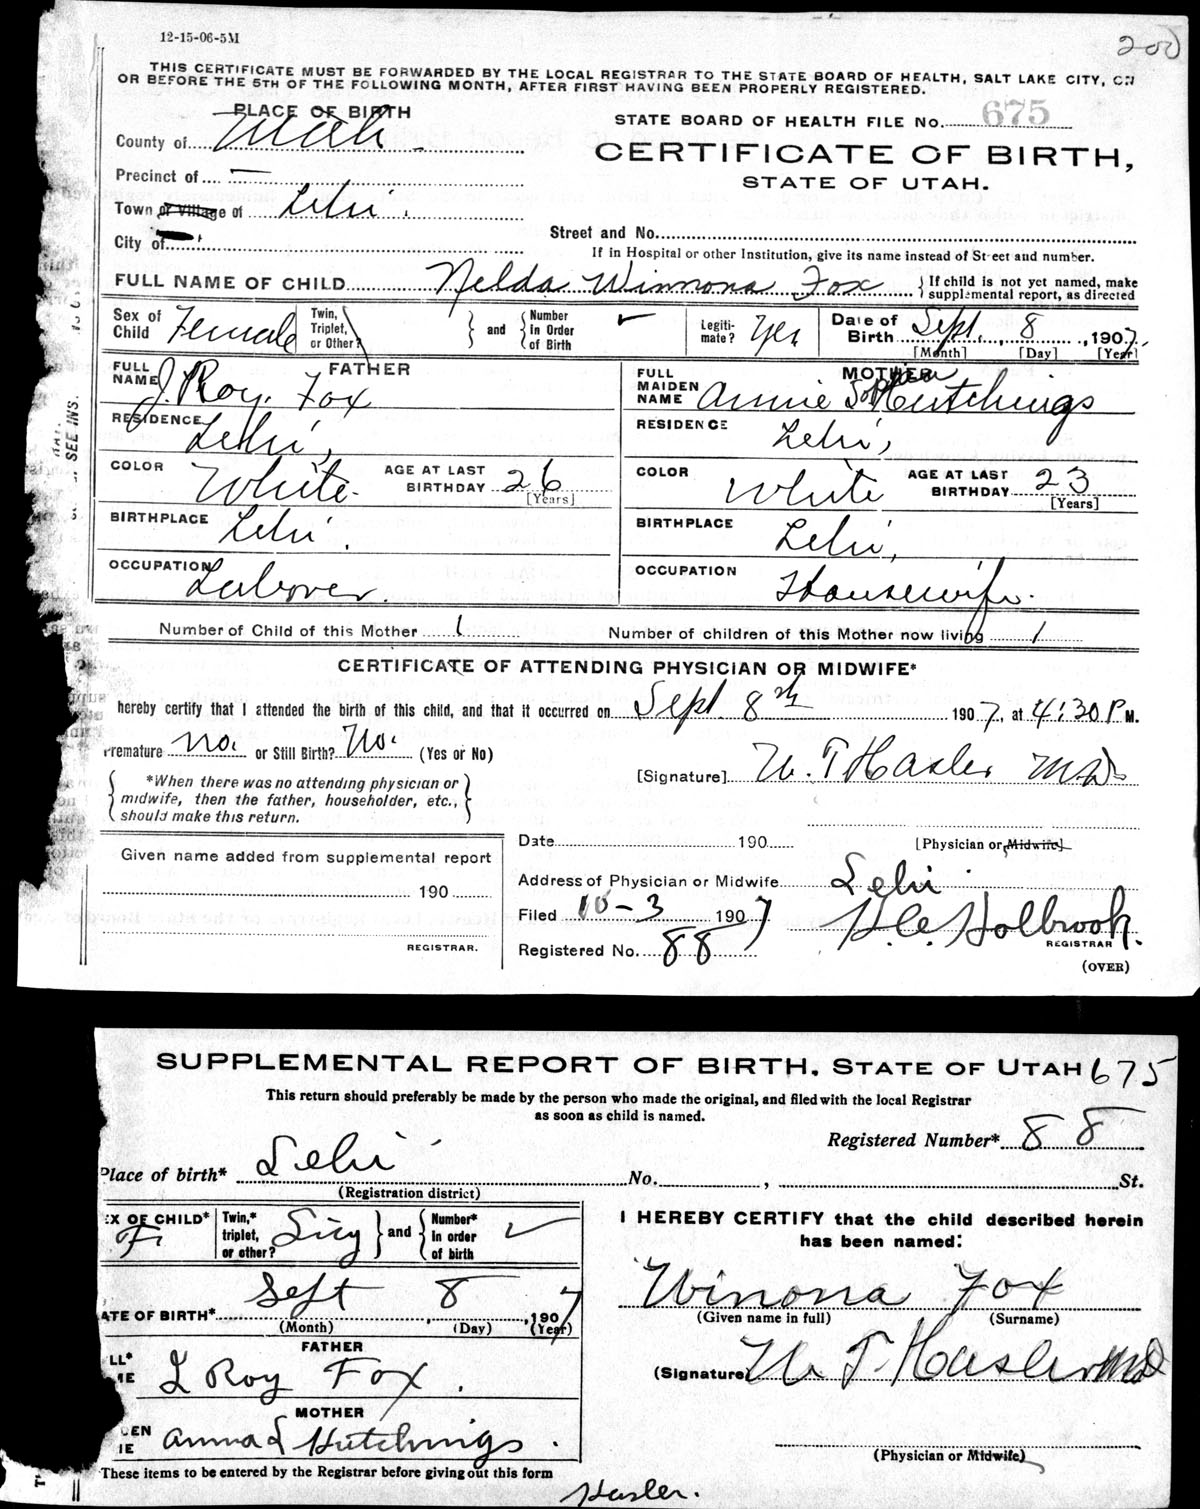 12-15-06-5M
200
THIS CERTIFICATE MUST BE FORWARDED BY THE LOCAL REGISTRAR TO THE STATE BOARD OF HEALTH, SALT LAKE CITY, ON
OR BEFORE THE 5TH OF THE FOLLOWING MONTH, AFTER FIRST HAVING BEEN PROPERLY REGISTERED.
PLACE OF BIRTH
STATE BOARD OF HEALTH FILE NO. 675
County of Utah
CERTIFICATE OF BIRTH,
STATE OF UTAH.
Precinct of —
Town or Village of Lehi.
City of
Street and No.
If in Hospital or other Institution, give its name instead of Street and number.
FULL NAME OF CHILD Nelda Winnona Fox { If child is not yet named, make supplemental report, as directed
Sex of Child Female Twin, Triplet, or Other? } and { Number in Order of Birth ✓ Legitimate? Yes Date of Birth Sept. 8, 1907.
[Month] [Day] [Year]
FATHER
MOTHER
FULL NAME J. Roy. Fox
FULL MAIDEN NAME Annie Hutchings
RESIDENCE Lehi,
RESIDENCE Lehi,
COLOR White. AGE AT LAST BIRTHDAY 26 [Years]
COLOR White AGE AT LAST BIRTHDAY 23 [Years]
BIRTHPLACE Lehi.
BIRTHPLACE Lehi,
OCCUPATION Laborer.
OCCUPATION Housewife.
Number of Child of this Mother 1 Number of children of this Mother now living 1
CERTIFICATE OF ATTENDING PHYSICIAN OR MIDWIFE*
hereby certify that I attended the birth of this child, and that it occurred on Sept. 8th 1907, at 4:30 P M.
Premature no. or Still Birth? No. (Yes or No)
[Signature] W. T Hasler MD
*When there was no attending physician or
midwife, then the father, householder, etc.,
should make this return.
Date 190 [Physician or Midwife]
Given name added from supplemental report
190
REGISTRAR.
Address of Physician or Midwife Lehi
Filed 10-3 1907 H.C. Holbrook.
REGISTRAR
Registered No. 88
(OVER)
OR SEE INS.
SUPPLEMENTAL REPORT OF BIRTH. STATE OF UTAH 675
This return should preferably be made by the person who made the original, and filed with the local Registrar
as soon as child is named.
Registered Number* 88
Place of birth* Lehi No. , St.
(Registration district)
EX OF CHILD* F. Twin,* triplet, or other? } and { Number* in order of birth ✓
I HEREBY CERTIFY that the child described herein
has been named:
ATE OF BIRTH* Sept 8, 1907
(Month) (Day) (Year)
Winona Fox
(Given name in full) (Surname)
FATHER
LL* ME L Roy Fox.
(Signature) W. T. Hasler MD
MOTHER
DEN ME Anna S Hutchings.
(Physician or Midwife)
These items to be entered by the Registrar before giving out this form
Hasler.